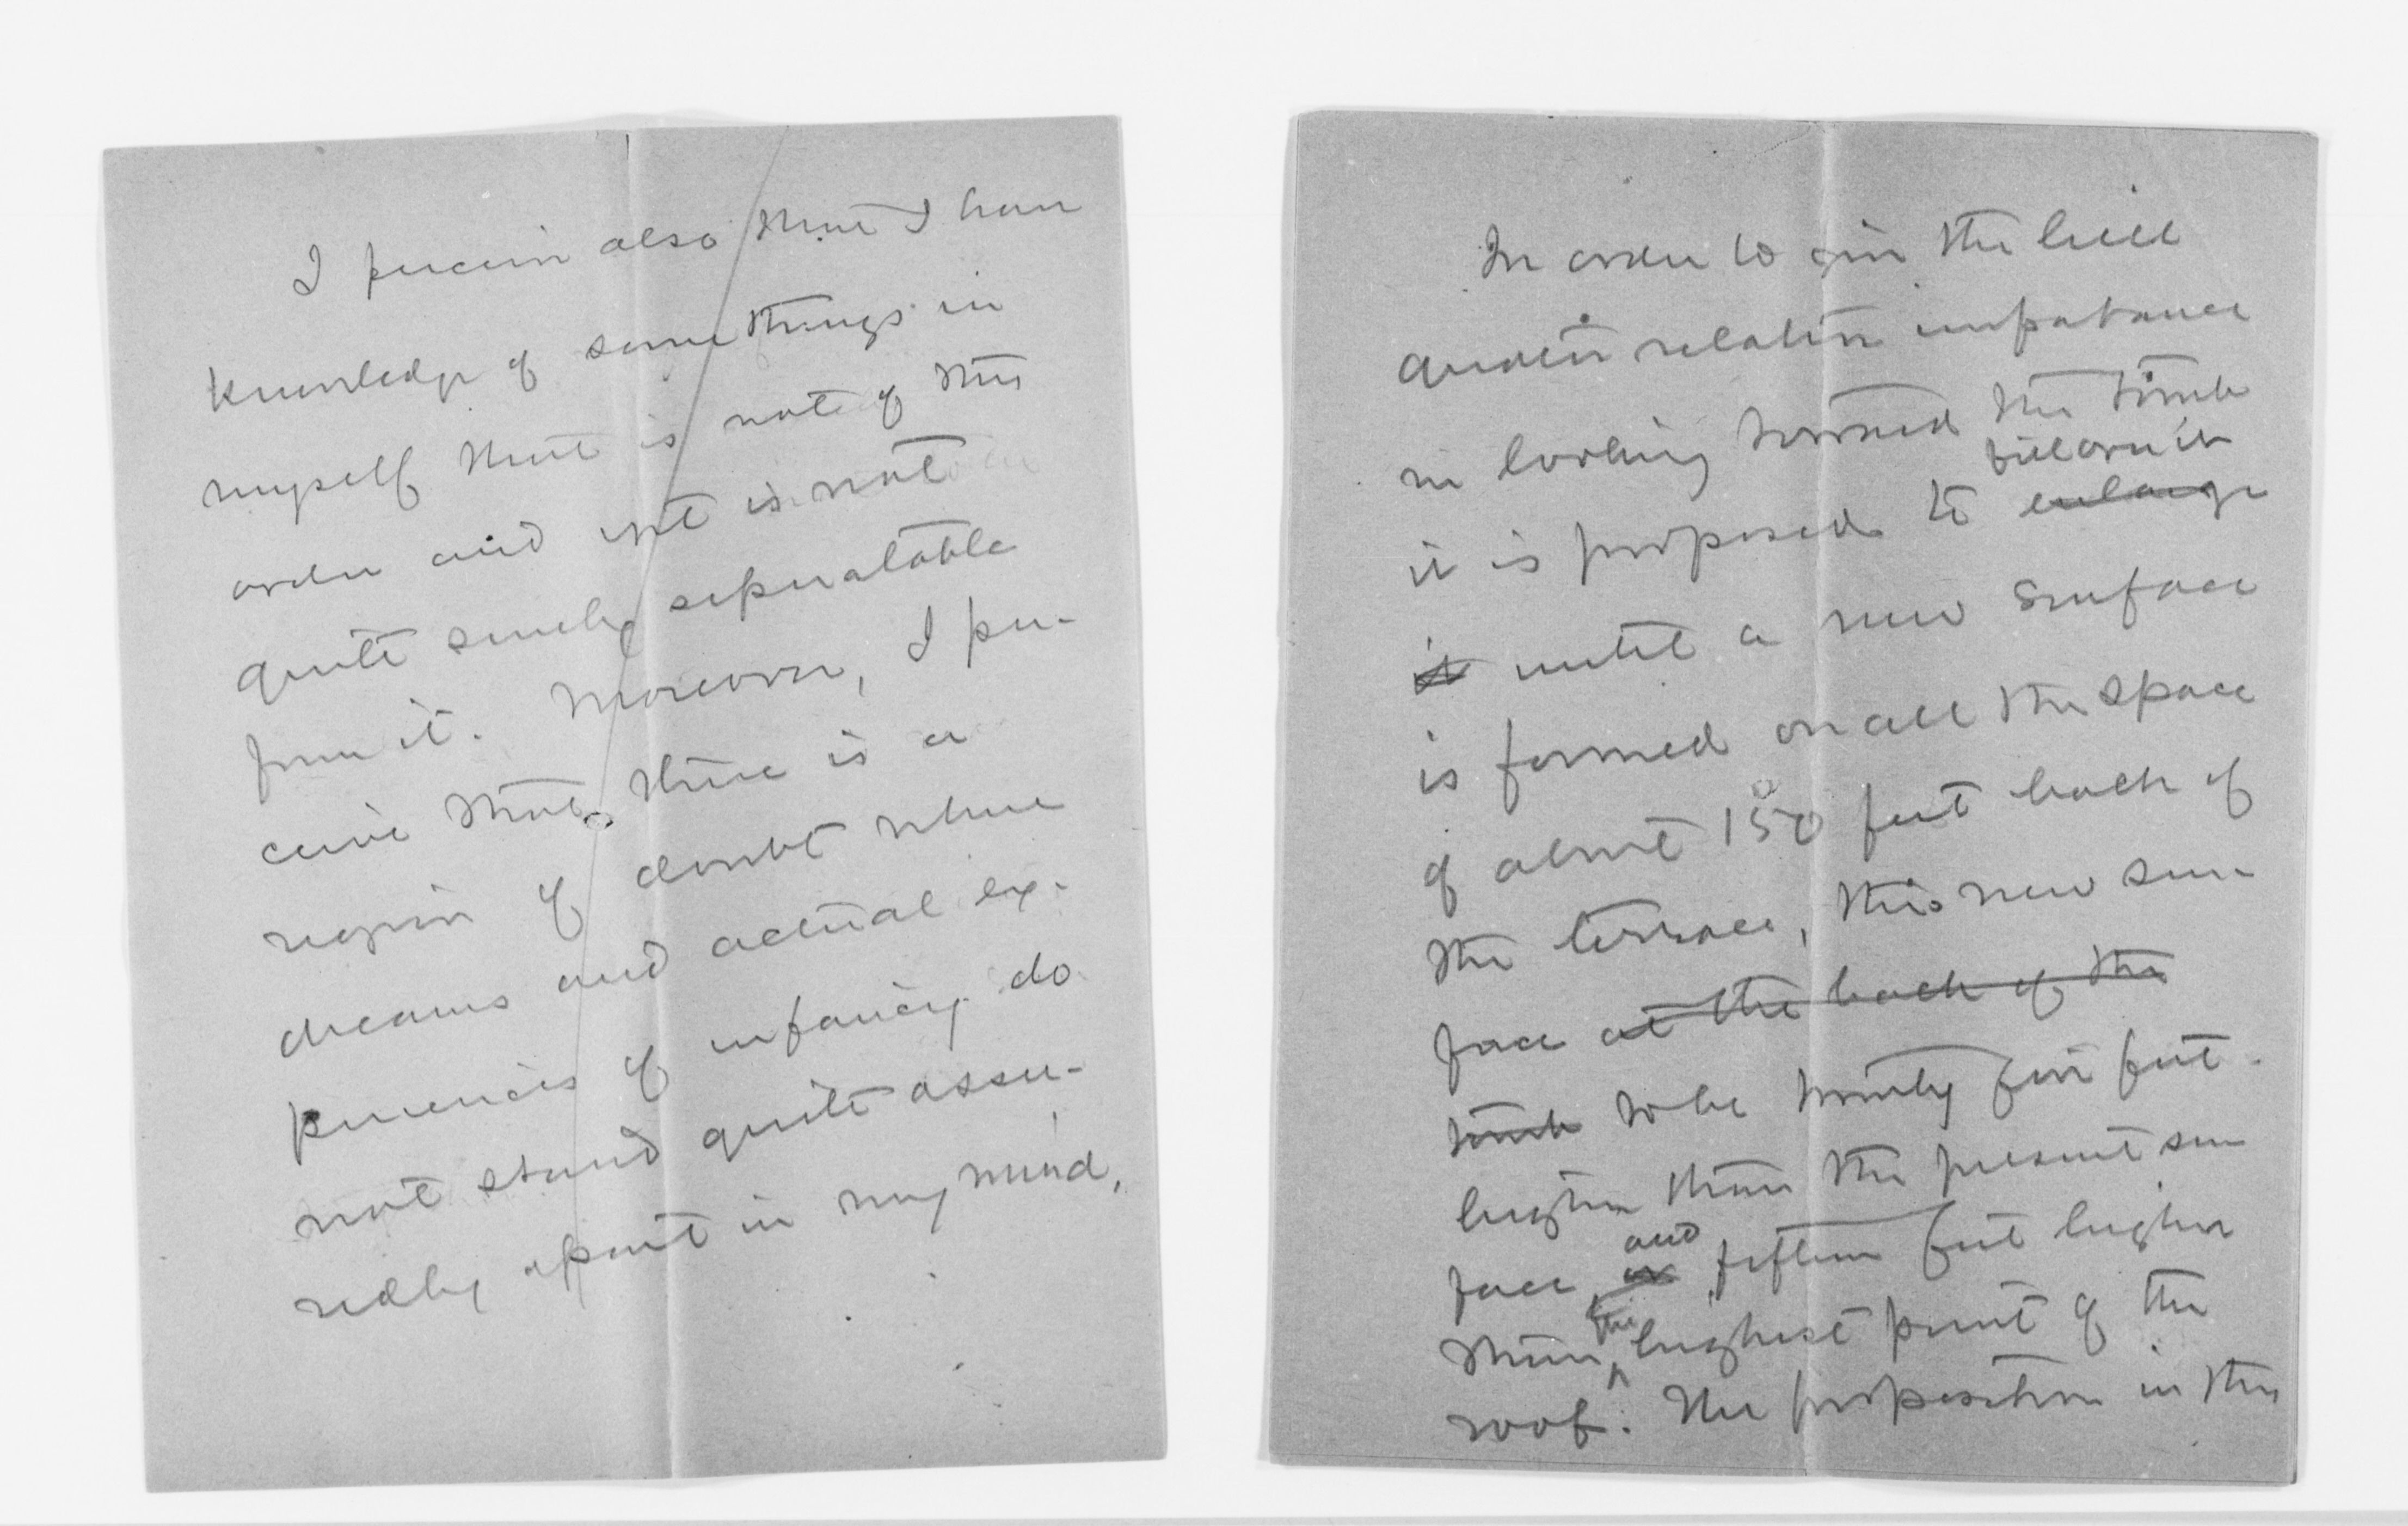 I perceive also that I have
knowledge of some things in
myself that is not of this
order and yet is not
quite surely separatable
from it. Moreover, I per-
ceive that there is a
region of doubt where
dreams and actual ex-
periences of infancy do
not stand quite assu-
redly apart in my mind,
In order to give the hill
greater relative importance
in looking toward the tomb
it is proposed to enlarge
it until a new surface
is formed on all the space
of about 150 feet back of
the terrace, this new sur-
face at the back of the
tomb to be twenty five feet
higher than the present sur
face, and fifteen feet higher
than the highest point of the
roof. The proposition in this